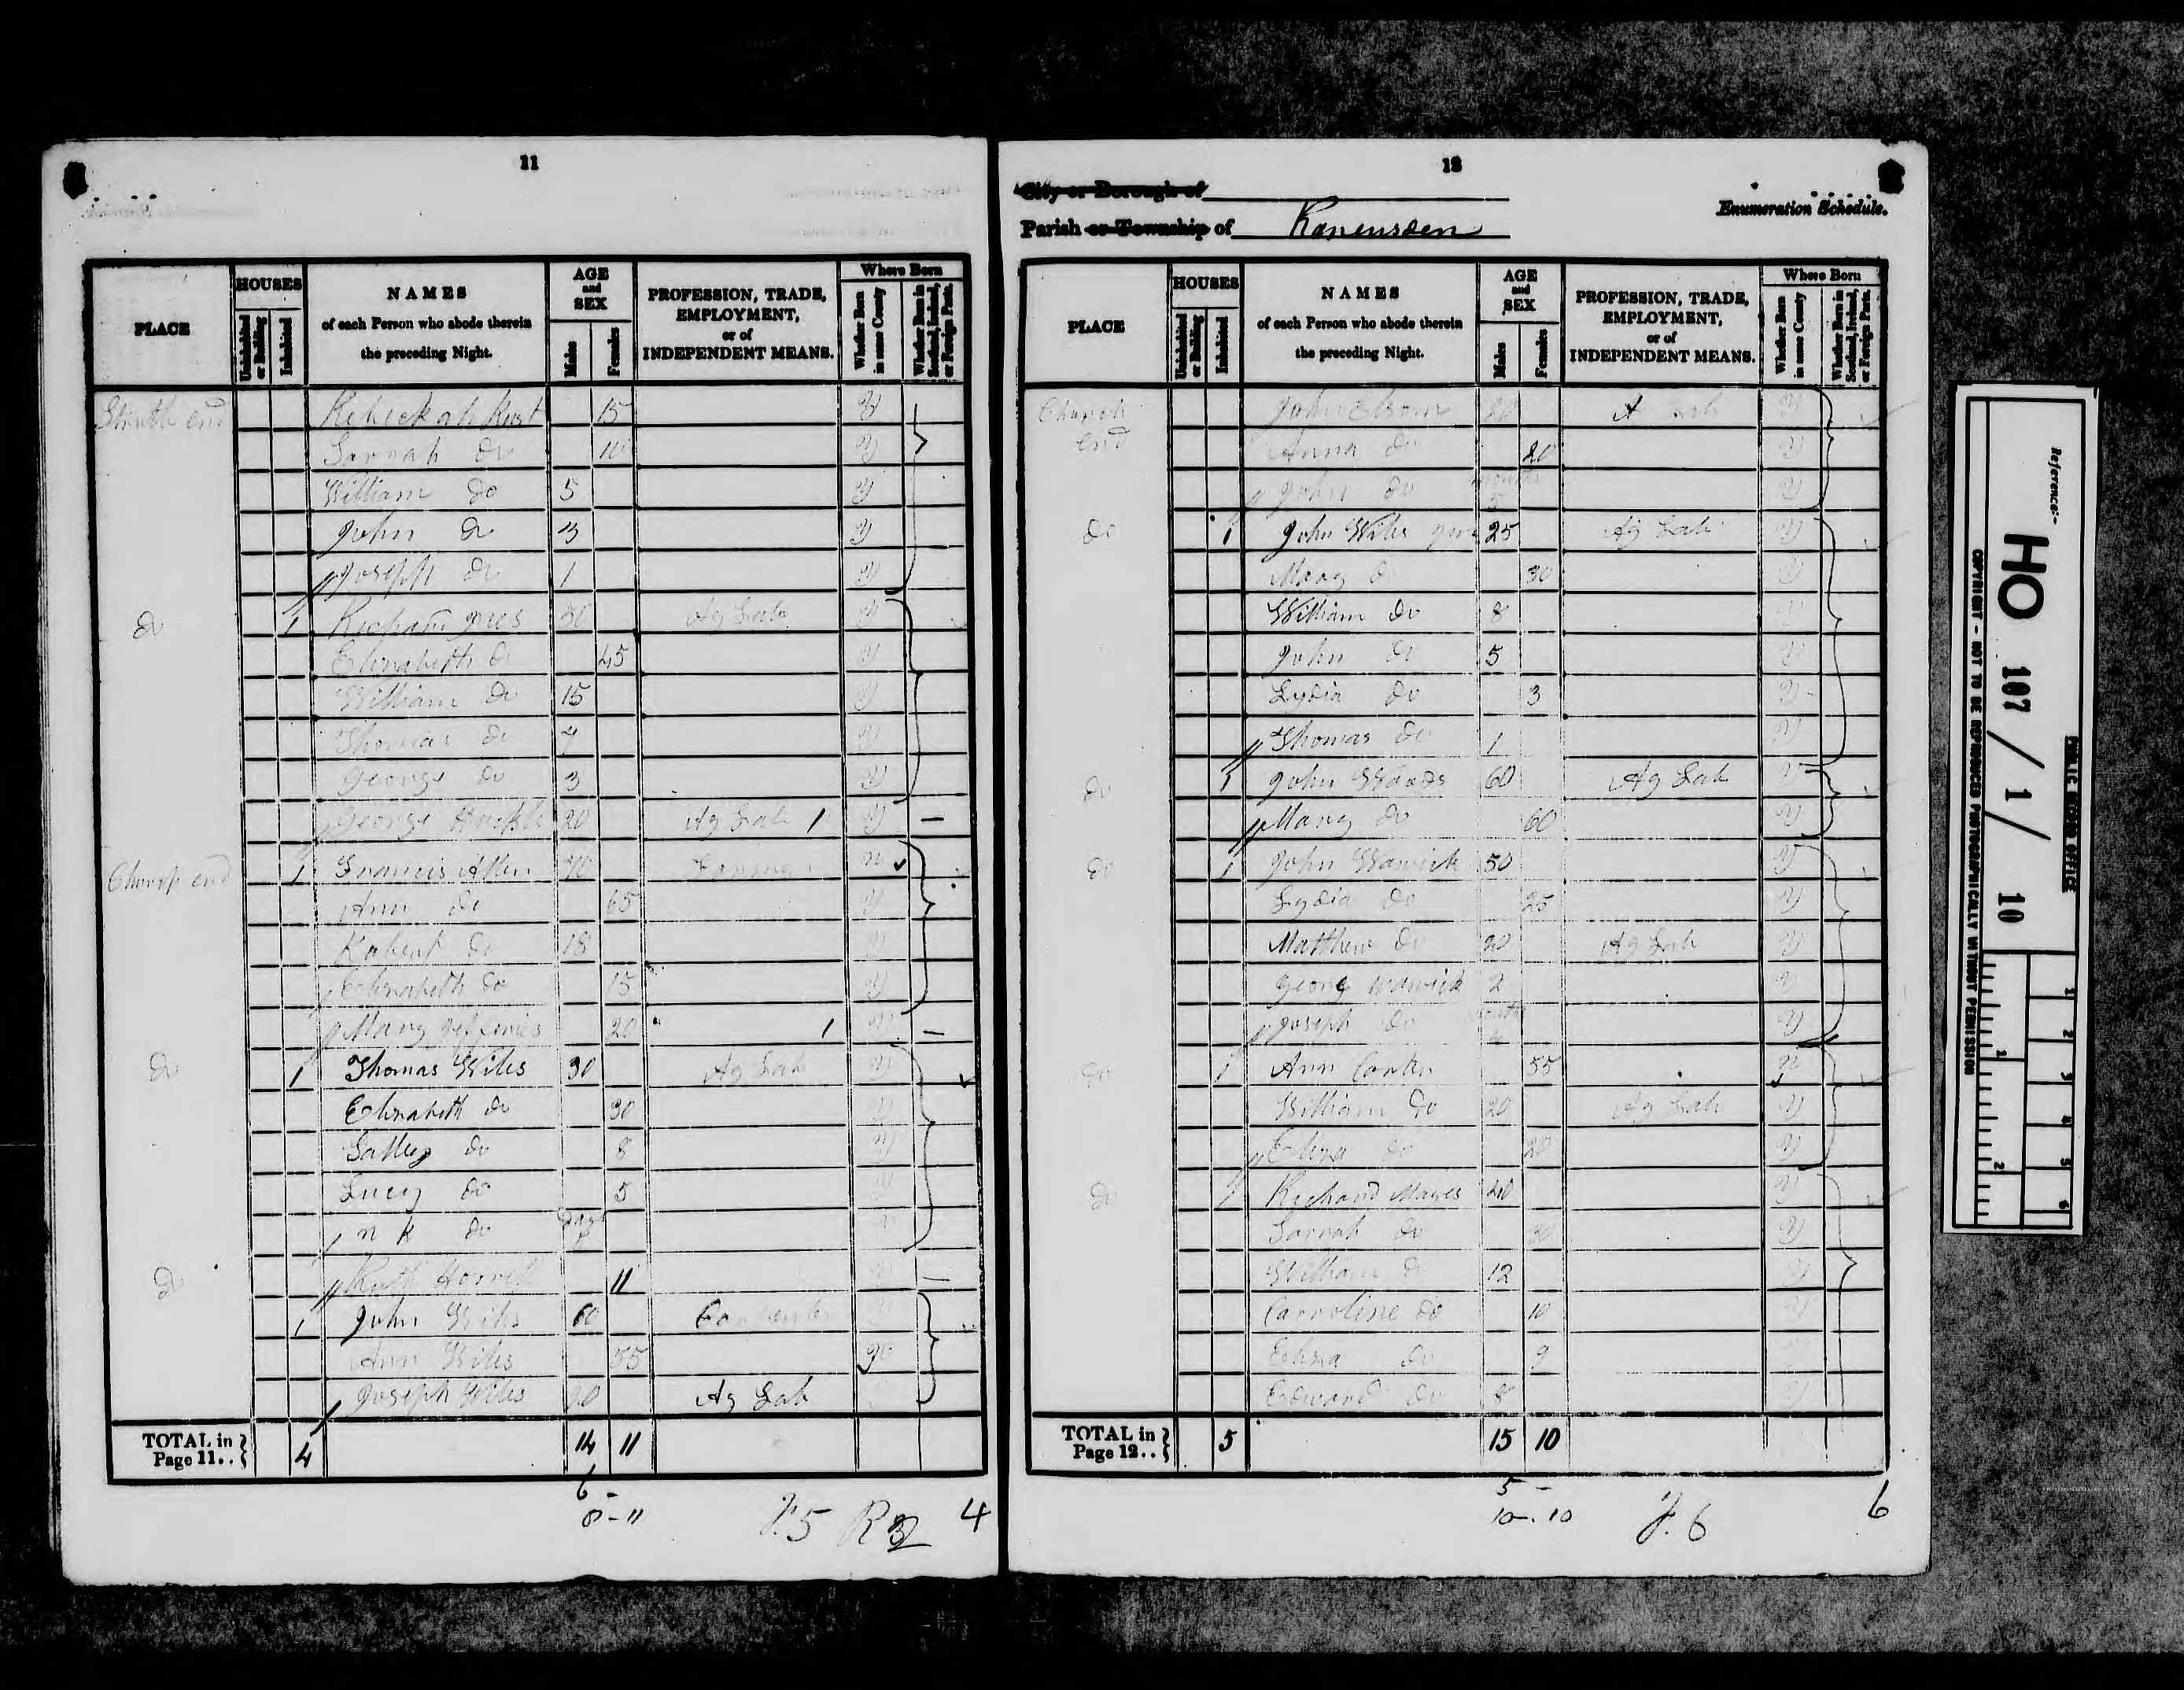 11
PLACE
HOUSES
Uninhabited or Building
Inhabited
NAMES
of each Person who abode therein
the preceding Night.
AGE and SEX
Males
Females
PROFESSION, TRADE,
EMPLOYMENT,
or of
INDEPENDENT MEANS.
Where Born
Whether Born in same County
Whether Born in Scotland, Ireland, or Foreign Parts.
end 15 y
Sarrah do 10 y
William do 5 y
John do 3 y
Joseph do 1 y
do 1 Richard 50 Ag Lab y
Elizabeth do 45 y
William do 15 y
Thomas do 7 y
George do 3 y
George 20 Ag Lab 1 y
Church end 1 Francis Allen 70 n
Ann do 65 y
Robert do 18 y
Elizabeth do 15 y
Mary 20 1 y
do 1 Thomas Wiles 30 Ag Lab y
Elizabeth do 30 y
Salley do 8 y
Lucy do 5 y
n k do
do Ruth 11
1 John Wiles 60
Ann Wiles 55
Joseph Wiles 20 Ag Lab
TOTAL in
Page 11.. 4 14 11
6 -
8-11
4
12
City or Borough of
Parish or Township of
Enumeration Schedule.
PLACE
HOUSES
Uninhabited or Building
Inhabited
NAMES
of each Person who abode therein
the preceding Night.
AGE and SEX
Males
Females
PROFESSION, TRADE,
EMPLOYMENT,
or of
INDEPENDENT MEANS.
Where Born
Whether Born in same County
Whether Born in Scotland, Ireland, or Foreign Parts.
Church end John 20 A Lab y
Anna do 20 y
John do months 5 y
do 1 John Wiles 25 Ag Lab y
Mary do 30 y
William do 8 y
John do 5 y
Lydia do 3 y
Thomas do 1 y
do 1 John Woods 60 Ag Lab y
Mary do 60 y
do 1 John Warwick 50 y
Lydia do 25 y
Matthew do 20 Ag Lab y
Georg Warwick 2 y
Joseph do months y
do 1 Ann 55 n
William do 20 Ag Lab y
Eliza do 20 y
do 1 Richard Mayes 40 y
Sarrah do 30 y
William do 12 y
Carroline do 10 y
Eliza do 9
Edward do 8 y
TOTAL in
Page 12.. 5 15 10
5 -
10-10
6
Reference:-
HO 107 / 1 / 10
PUBLIC RECORD OFFICE
COPYRIGHT - NOT TO BE REPRODUCED PHOTOGRAPHICALLY WITHOUT PERMISSION
1 2 3 4 5 6
1 2